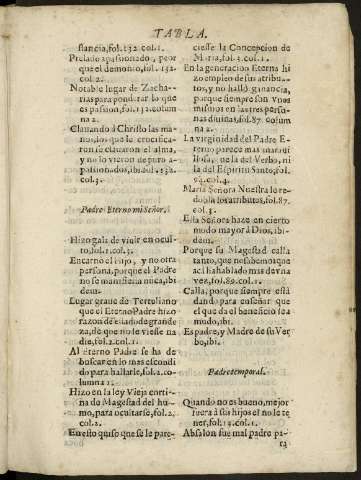 TABLA.
stancia, fol. 132. col. 1.
Prelado apasionado, peor
que el demonio, fol. 132.
col. 2.
Notable lugar de Zacha-
rias para ponderar lo que
es pasion, fol. 132. colum
na 2.
Clauando à Christo las ma
nos, los que le crucifica-
ron se clauaron el alma,
y no lo vieron de puro a-
pasionados, ibi. 132.
col. 3.
Padre Eterno mi Señor.
Hizo gala de viuir en ocul-
to, fol. 1. col. 3.
Encarno el Hijo, y no otra
persona, porque el Padre
no se manifiesta nũca, ibi
dem.
Lugar graue de Tertuliano
que el Eterno Padre hizo
razon de estado de grande
za, de que no le viesse na
die, fol. 2. col. 1.
Al eterno Padre se ha de
buscar en lo mas escondi
do para hallarle, fol. 2. co
lumna 2.
Hizo en la ley Vieja corti-
na de Magestad del hu-
mo, para ocultarse, fol. 2.
col. 2.
En esto quiso que se le pare-
ciesse la Concepcion de
Maria, fol. 3. col. 1.
En la generacion Eterna hi
zo empleo de sus atribu-
tos, y no hallò ganancia,
porque siempre son vnos
mismos en las tres perso-
nas diuinas, fol. 87. colum
na 2.
La virginidad del Padre E-
terno parece mas maraui
llosa, que la del Verbo, ni
la del Espiritu Santo, fol.
col. 4.
Maria Señora Nuestra le re-
doblò los atributos, fol. 87.
col. 3.
Esta Señora haze en cierto
modo mayor à Dios, ibi-
dem.
Porque su Magestad calla
tanto, que no sabemos que
acà aya hablado mas de vna
vez, fol. 89. col. 1.
Calla, porque siempre està
dando para enseñar que
el que da el beneficio sea
mudo, ibi.
Es padre, y Madre de su Ver
bo, ibi.
Padre temporal.
Quando no es bueno, mejor
fuera à sus hijos el no le te
ner, fol. 14. col. 1.
Absalon fue mal padre pa-
ra